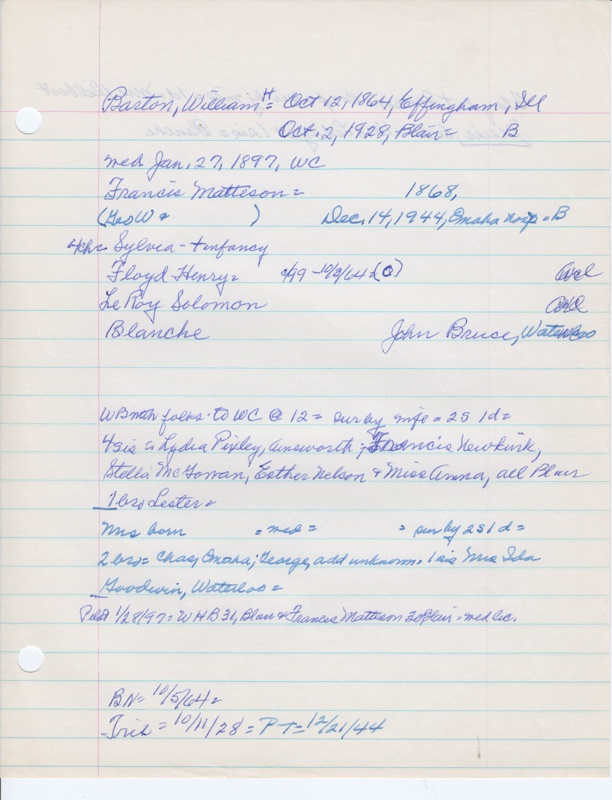 Barton, William H = Oct 12, 1864, Effingham, Ill
Oct. 2, 1928, Blair = B
med Jan. 27, 1897, WC
Francis Matteson = 1868,
(Geo W & ) Dec. 14, 1944, Omaha hosp = B
4 chr = Sylvia - + infancy
Floyd Henry = c/99 - 10/3/64 (O) ave
LeRoy Solomon
Blanche John Bruce, Waterloo
WB with folks to WC @ 12 = sur by wife = 2S 1d =
4 sis = Lydia Pixley, Ainsworth; Francis Newkirk,
Stella McGowan, Esther Nelson & Miss Anna, all Blair
1 bro Lester =
Mrs born = med = = sur by 2S 1d =
2 bro = Chas, Omaha; George, add unknown. 1 sis Mrs Ida
Goodwin, Waterloo =
Pilot 1/28/97 = W H B 31, Blair & Frances Matteson 30 Blair = med lic.
BN = 10/5/64 =
Trib = 10/11/28 = PT = 12/21/44